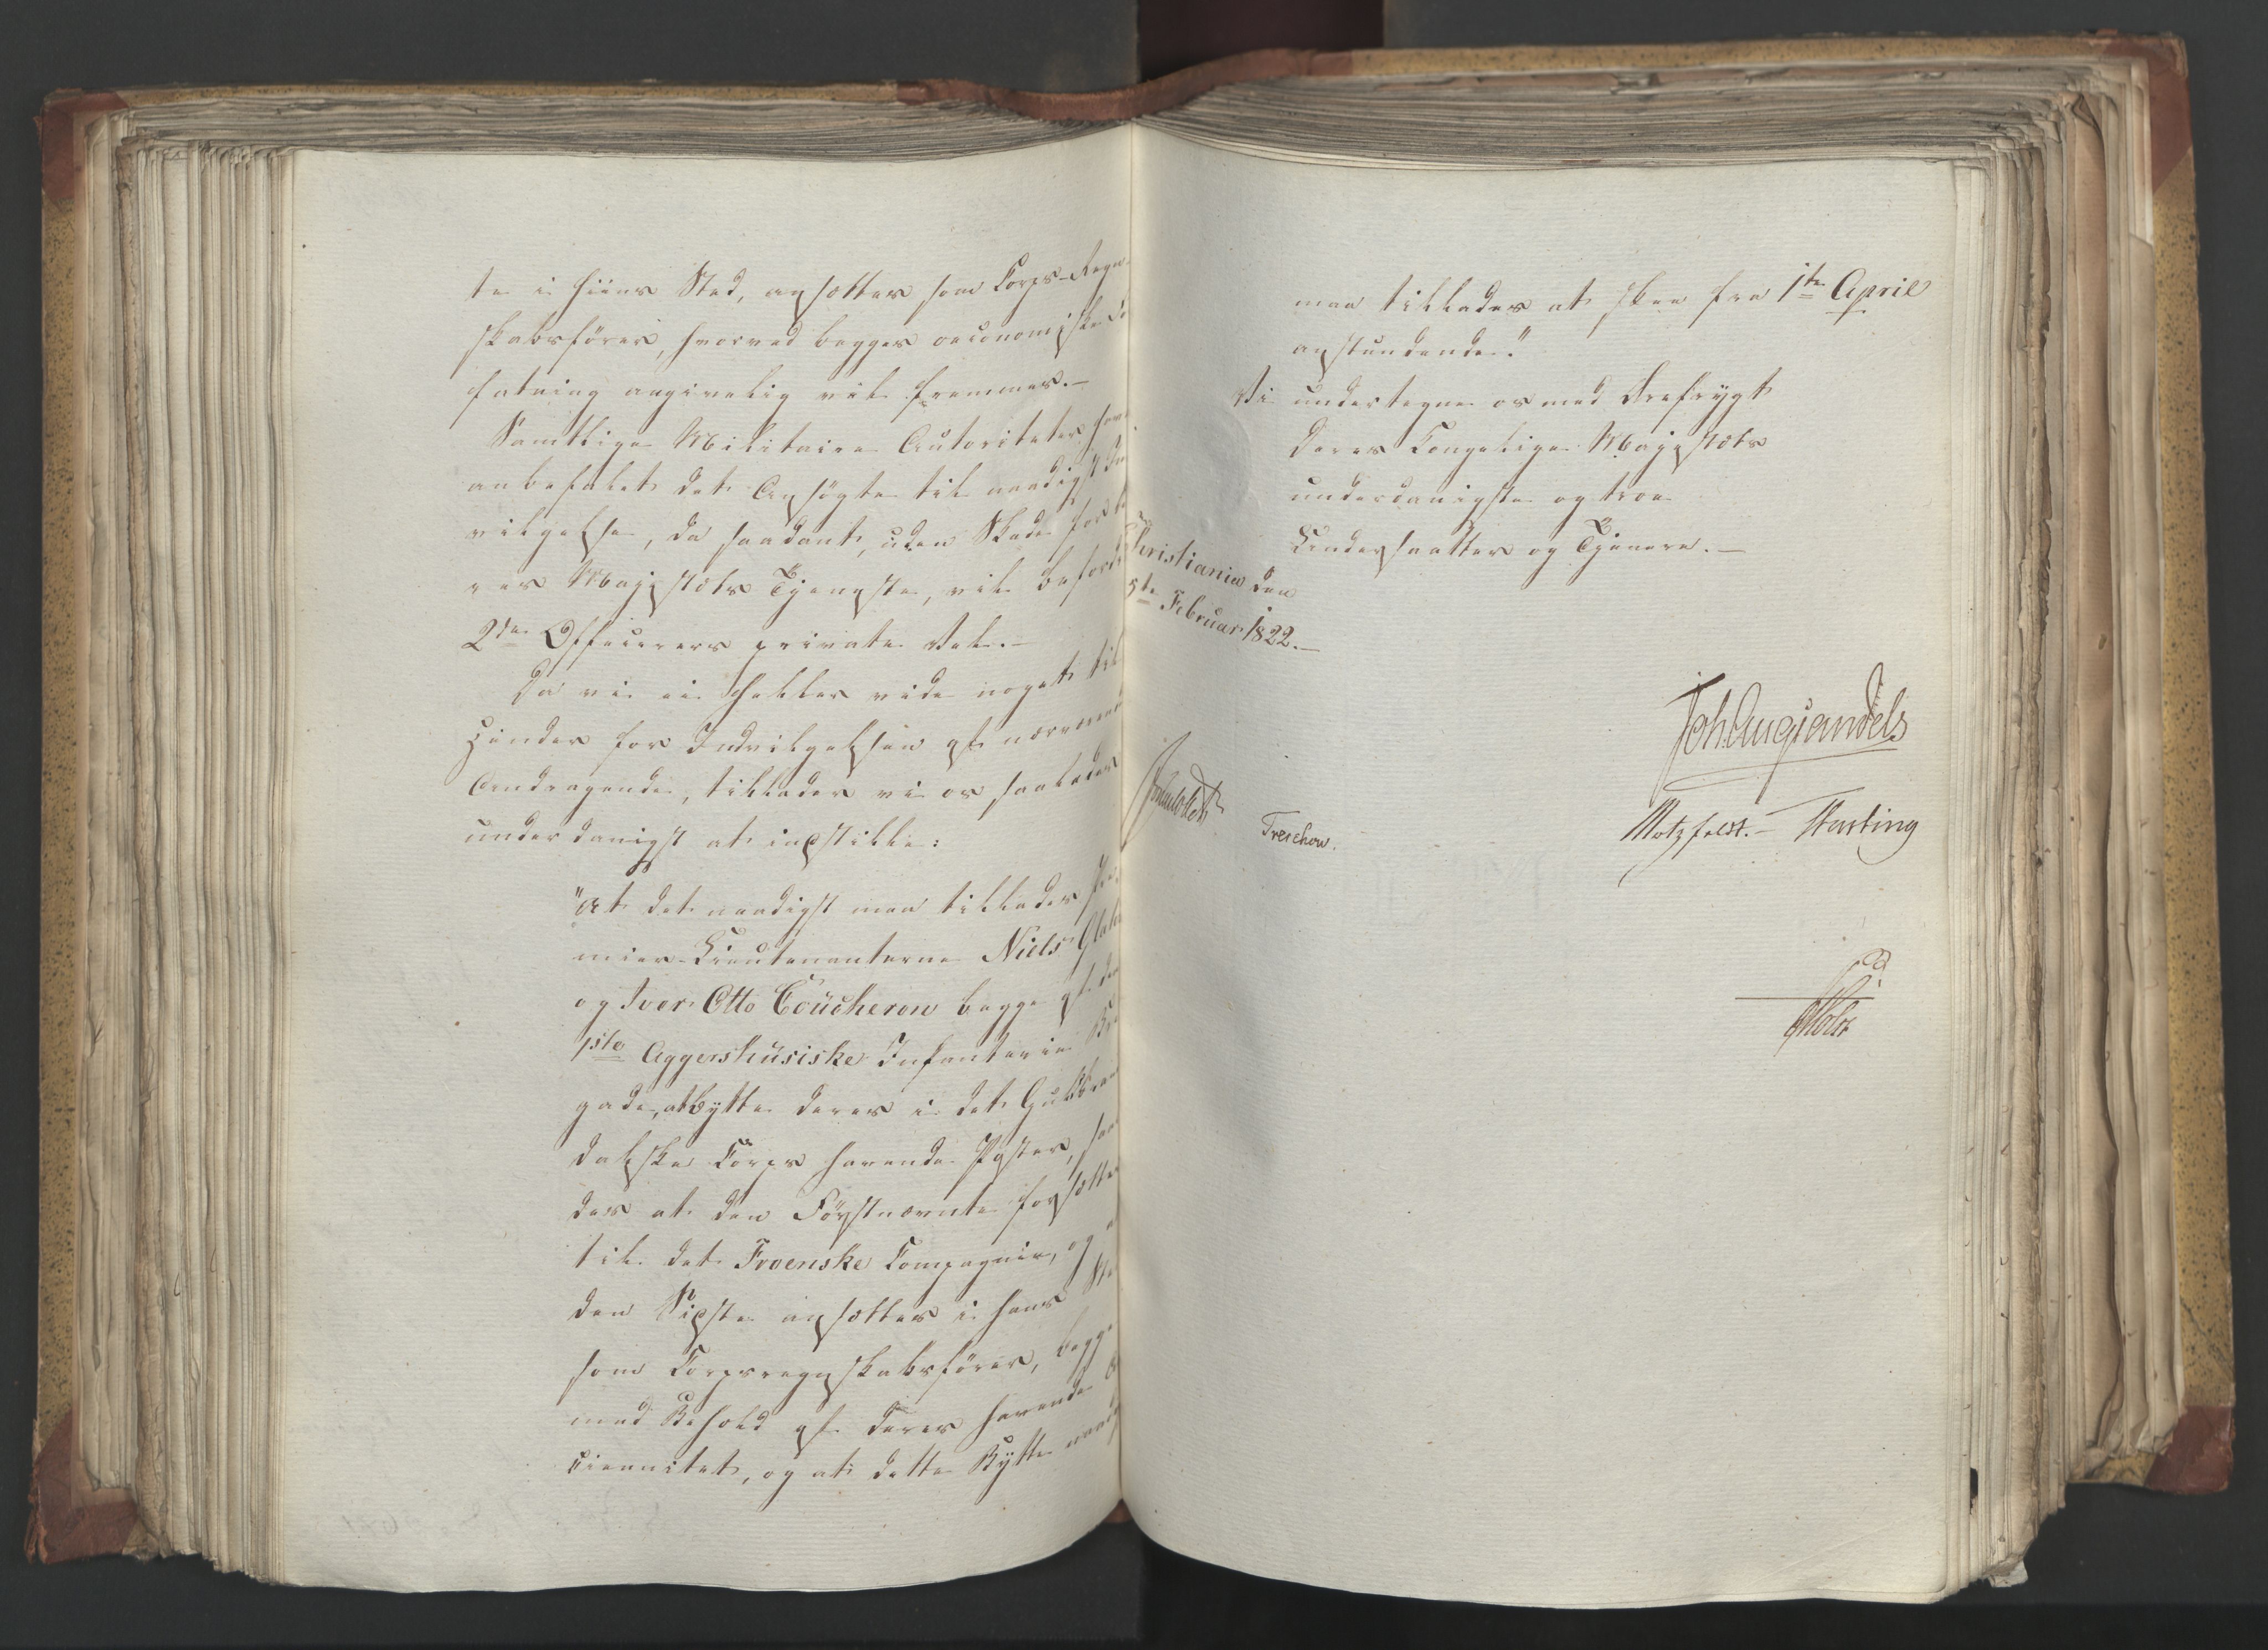 te i hiins Sted, ansættes som Corps-Regn-
skabsfører, hvorved begges oeconomiske
fatning angivelig vil fremmes.—
Samtlige Militaire Autoriteter
anbefalet det Ansøgte til naadigst
vilgelse, da saadant, uden Skade for
res Majestæts Tjeneste, vil
2de Officerers private Vel.—
Da vi ei heller vide noget til
Hinder for Indvilgelsen af
Andragende, tillader vi os saaledes
underdanigst at indstille:
"At det naadigst maa tillades
mier-Lieutenanterne Niels
og Iver Otto Coucheron begge af
1ste Aggershusiske Infanterie
gade, at bytte deres i det
dalske Corps havende Poster,
des at den Førstnævnte forsættes
til det Froenske Compagnie, og
den Sidste ansættes i hans
som Corpsregnskabsfører, begge
med Behold af deres havende
ciennitet, og at dette Bytte
maa tillades at skee fra 1te April
anstundende."
Vi undertegne os med Ærefrygt
Deres Kongelige Majestæts
underdanigste og troe
Undersaatter og Tjenere.—
Christiania den
5te Februar 1822.—
Joh. Aug. Sandels
Motzfeldt.— Fasting
Treschow.
Holst